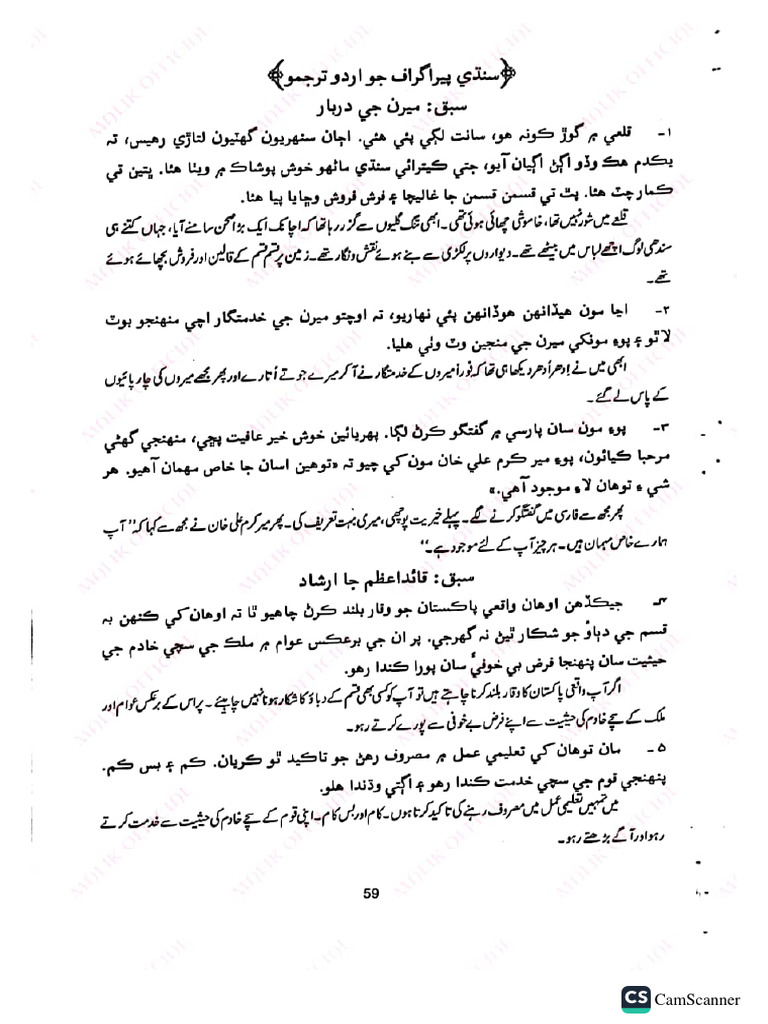 ﴿سنڌي پيراگراف جو اردو ترجمو﴾
سبق: ميرن جي دربار
۱- قلعي ۾ گوڙ ڪونہ هو، سانت لڳي پئي هئي. اڃان سنهريون گهٽيون لتاڙي رهيس، تہ
يڪدم هڪ وڏو اڱڻ اڳيان آيو، جتي ڪيترائي سنڌي ماڻهو خوش پوشاڪ ۾ ويٺا هئا. ڀتين تي
ڪمار چٽ هئا. پٽ تي قسمن قسمن جا غاليچا ۽ فرش فروش وڇايا پيا هئا.
قلعے میں شور نہیں تھا، خاموشی چھائی ہوئی تھی۔ ابھی تنگ گلیوں سے گزر رہا تھا کہ اچانک ایک بڑا صحن سامنے آیا، جہاں کتنے ہی
سندھی لوگ اچھے لباس میں بیٹھے تھے۔ دیواروں پر لکڑی سے بنے ہوئے نقش و نگار تھے۔ زمین پر قسم قسم کے قالین اور فروش بچھائے ہوئے
تھے۔
۲- اڃا مون هيڏانهن هوڏانهن پئي نهاريو، تہ اوچتو ميرن جي خدمتگار اچي منهنجو بوٽ
لاٿو ۽ پوءِ مونکي ميرن جي منجين وٽ وٺي هليا.
ابھی میں نے اِدھر اُدھر دیکھا ہی تھا کہ فوراً میروں کے خدمتگار نے آ کر میرے جوتے اُتارے اور پھر مجھے میروں کی چارپائیوں
کے پاس لے گئے۔
۳- پوءِ مون سان پارسي ۾ گفتگو ڪرڻ لڳا. پهريائين خوش خير عافيت پڇي، منهنجي گهڻي
مرحبا ڪيائون، پوءِ مير ڪرم علي خان مون کي چيو تہ «توهين اسان جا خاص مهمان آهيو. هر
شيءِ توهان لاءِ موجود آهي.»
پھر مجھ سے فارسی میں گفتگو کرنے لگے۔ پہلے خیریت پوچھی، میری بہت تعریف کی۔ پھر میر کرم علی خان نے مجھ سے کہا کہ ”آپ
ہمارے خاص مہمان ہیں۔ ہر چیز آپ کے لئے موجود ہے۔“
سبق: قائداعظم جا ارشاد
۴- جيڪڏهن اوهان واقعي پاڪستان جو وقار بلند ڪرڻ چاهيو ٿا تہ اوهان کي ڪنهن بہ
قسم جي دٻاوُ جو شڪار ٿيڻ نہ گهرجي. پر ان جي برعڪس عوام ۾ ملڪ جي سچي خادم جي
حيثيت سان پنهنجا فرض بي خوفيءَ سان پورا ڪندا رهو.
اگر آپ واقعی پاکستان کا وقار بلند کرنا چاہتے ہیں تو آپ کو کسی بھی قسم کے دباؤ کا شکار ہونا نہیں چاہئے۔ پر اس کے برعکس عوام اور
ملک کے سچے خادم کی حیثیت سے اپنے فرض بے خوفی سے پورے کرتے رہو۔
۵- مان توهان کي تعليمي عمل ۾ مصروف رهڻ جو تاڪيد ٿو ڪريان. ڪم ۽ بس ڪم.
پنهنجي قوم جي سچي خدمت ڪندا رهو ۽ اڳتي وڌندا هلو.
میں تمہیں تعلیمی عمل میں مصروف رہنے کی تاکید کرتا ہوں۔ کام اور بس کام۔ اپنی قوم کے سچے خادم کی حیثیت سے خدمت کرتے
رہو اور آگے بڑھتے رہو۔
59
CS CamScanner